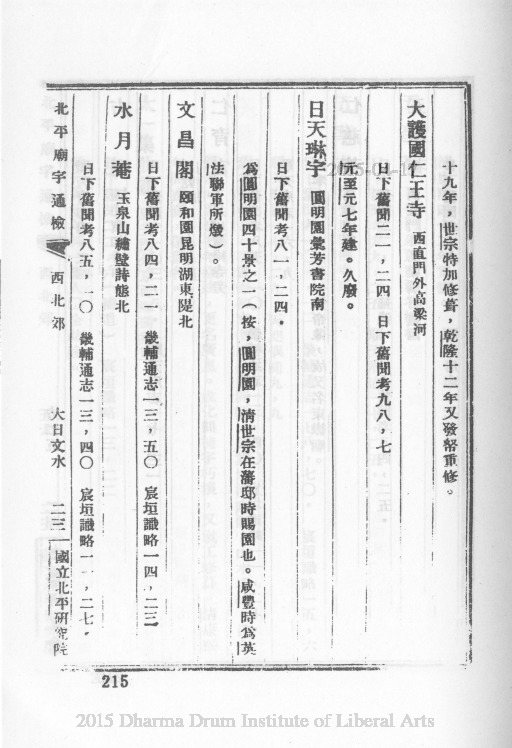 十九年，世宗特加修葺，乾隆十二年又發帑重修。
大護國仁王寺 西直門外高梁河
日下舊聞二一，二四 日下舊聞考九八，七
元至元七年建。久廢。
日天琳宇 圓明園彙芳書院南
日下舊聞考八一，二四。
爲圓明園四十景之一（按，圓明園，清世宗在藩邸時賜園也。咸豐時爲英
法聯軍所燬）。
文昌閣 頤和園昆明湖東隄北
日下舊聞考八四，二一 畿輔通志一三，五〇 宸垣識略一四，二三
水月菴 玉泉山繡壁詩態北
日下舊聞考八五，一〇 畿輔通志一三，四〇 宸垣識略一一，二七。
北平廟宇通檢 西北郊 大日文水 二三 國立北平研究院
215
2015 Dharma Drum Institute of Liberal Arts